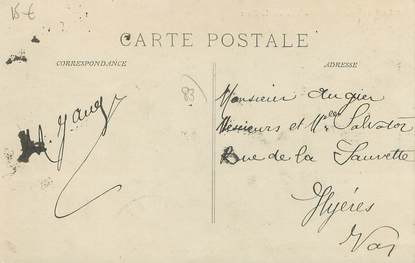 15 €
CARTE POSTALE
CORRESPONDANCE
ADRESSE
83
Monsieur Augier
Messieurs et Melles Salvator
Rue de la Sauvette
Hyères
Var